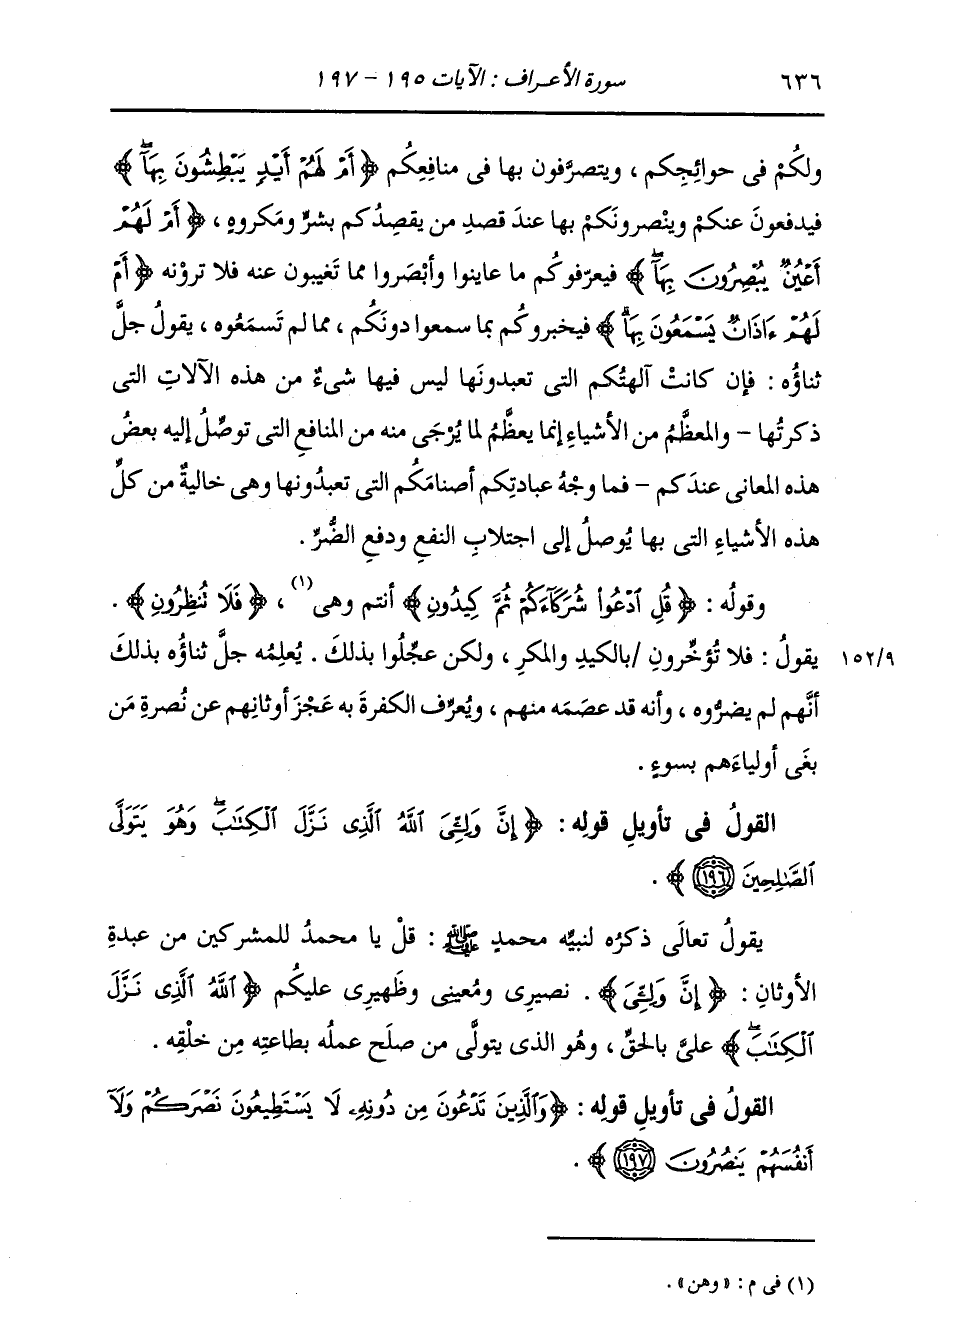 ٦٣٦ سورة الأعراف : الآيات ١٩٥ - ١٩٧
ولكُمْ فى حوائِجِكم ، ويتصرَّفون بها فى منافِعِكُم ﴿ أَمْ لَهُمْ أَيْدٍ يَبْطِشُونَ بِهَآ ﴾
فيدفعونَ عنكمْ وينْصرونَكمْ بها عندَ قصدِ من يقصِدُكم بشرٍّ ومَكروهٍ ، ﴿ أَمْ لَهُمْ
أَعْيُنٌ يُبْصِرُونَ بِهَآ ﴾ فيعرّفوكُم ما عاينوا وأبْصَروا مما تَغيبون عنه فلا تروْنه ﴿ أَمْ
لَهُمْ ءَاذَانٌ يَسْمَعُونَ بِهَا ﴾ فيخبروكُم بما سمعوا دونَكُم ، مما لم تَسمَعُوه ، يقولُ جلَّ
ثناؤُه : فإن كانتْ آلهتُكم التى تعبدونَها ليس فيها شىءٌ من هذه الآلاتِ التى
ذكرتُها - والمعظَّمُ من الأشياءِ إنما يعظَّمُ لما يُرْجَى منه من المنافعِ التى توصِّلُ إليه بعضُ
هذه المعانى عندَكم - فما وجْهُ عبادتِكم أصنامَكُم التى تعبدُونها وهى خاليةٌ من كلِّ
هذه الأشياءِ التى بها يُوصلُ إلى اجتلابِ النفعِ ودفعِ الضُّرِّ .
وقولُه : ﴿ قُلِ ٱدْعُوا۟ شُرَكَآءَكُمْ ثُمَّ كِيدُونِ ﴾ أنتم وهى(١) ، ﴿ فَلَا تُنظِرُونِ ﴾ .
١٥٢/٩ يقولُ : فلا تُؤخِّرونِ /بالكيدِ والمكرِ ، ولكن عجِّلُوا بذلكَ . يُعلِمُه جلَّ ثناؤُه بذلكَ
أنَّهم لم يضرُّوه ، وأنه قد عصَمَه منهم ، ويُعرِّف الكفرةَ به عَجْزَ أوثانِهم عن نُصرةِ مَن
بغَى أولياءَهم بسوءٍ .
القولُ فى تأويلِ قولِه : ﴿ إِنَّ وَلِـِّۧىَ ٱللَّهُ ٱلَّذِى نَزَّلَ ٱلْكِتَٰبَ ۖ وَهُوَ يَتَوَلَّى
ٱلصَّٰلِحِينَ ١٩٦ ﴾ .
يقولُ تعالَى ذكرُه لنبيِّه محمدٍ ﷺ : قلْ يا محمدُ للمشركين من عبدةِ
الأوثانِ : ﴿ إِنَّ وَلِـِّۧىَ ﴾ . نصيرِى ومُعينِى وظَهيرِى عليكُم ﴿ ٱللَّهُ ٱلَّذِى نَزَّلَ
ٱلْكِتَٰبَ ۖ ﴾ علىَّ بالحقِّ ، وهُو الذى يتولَّى من صلَح عملُه بطاعتِه مِن خلْقِه .
القولُ فى تأويلِ قولِه : ﴿ وَٱلَّذِينَ تَدْعُونَ مِن دُونِهِۦ لَا يَسْتَطِيعُونَ نَصْرَكُمْ وَلَآ
أَنفُسَهُمْ يَنصُرُونَ ١٩٧ ﴾ .
(١) فى م : « وهن » .